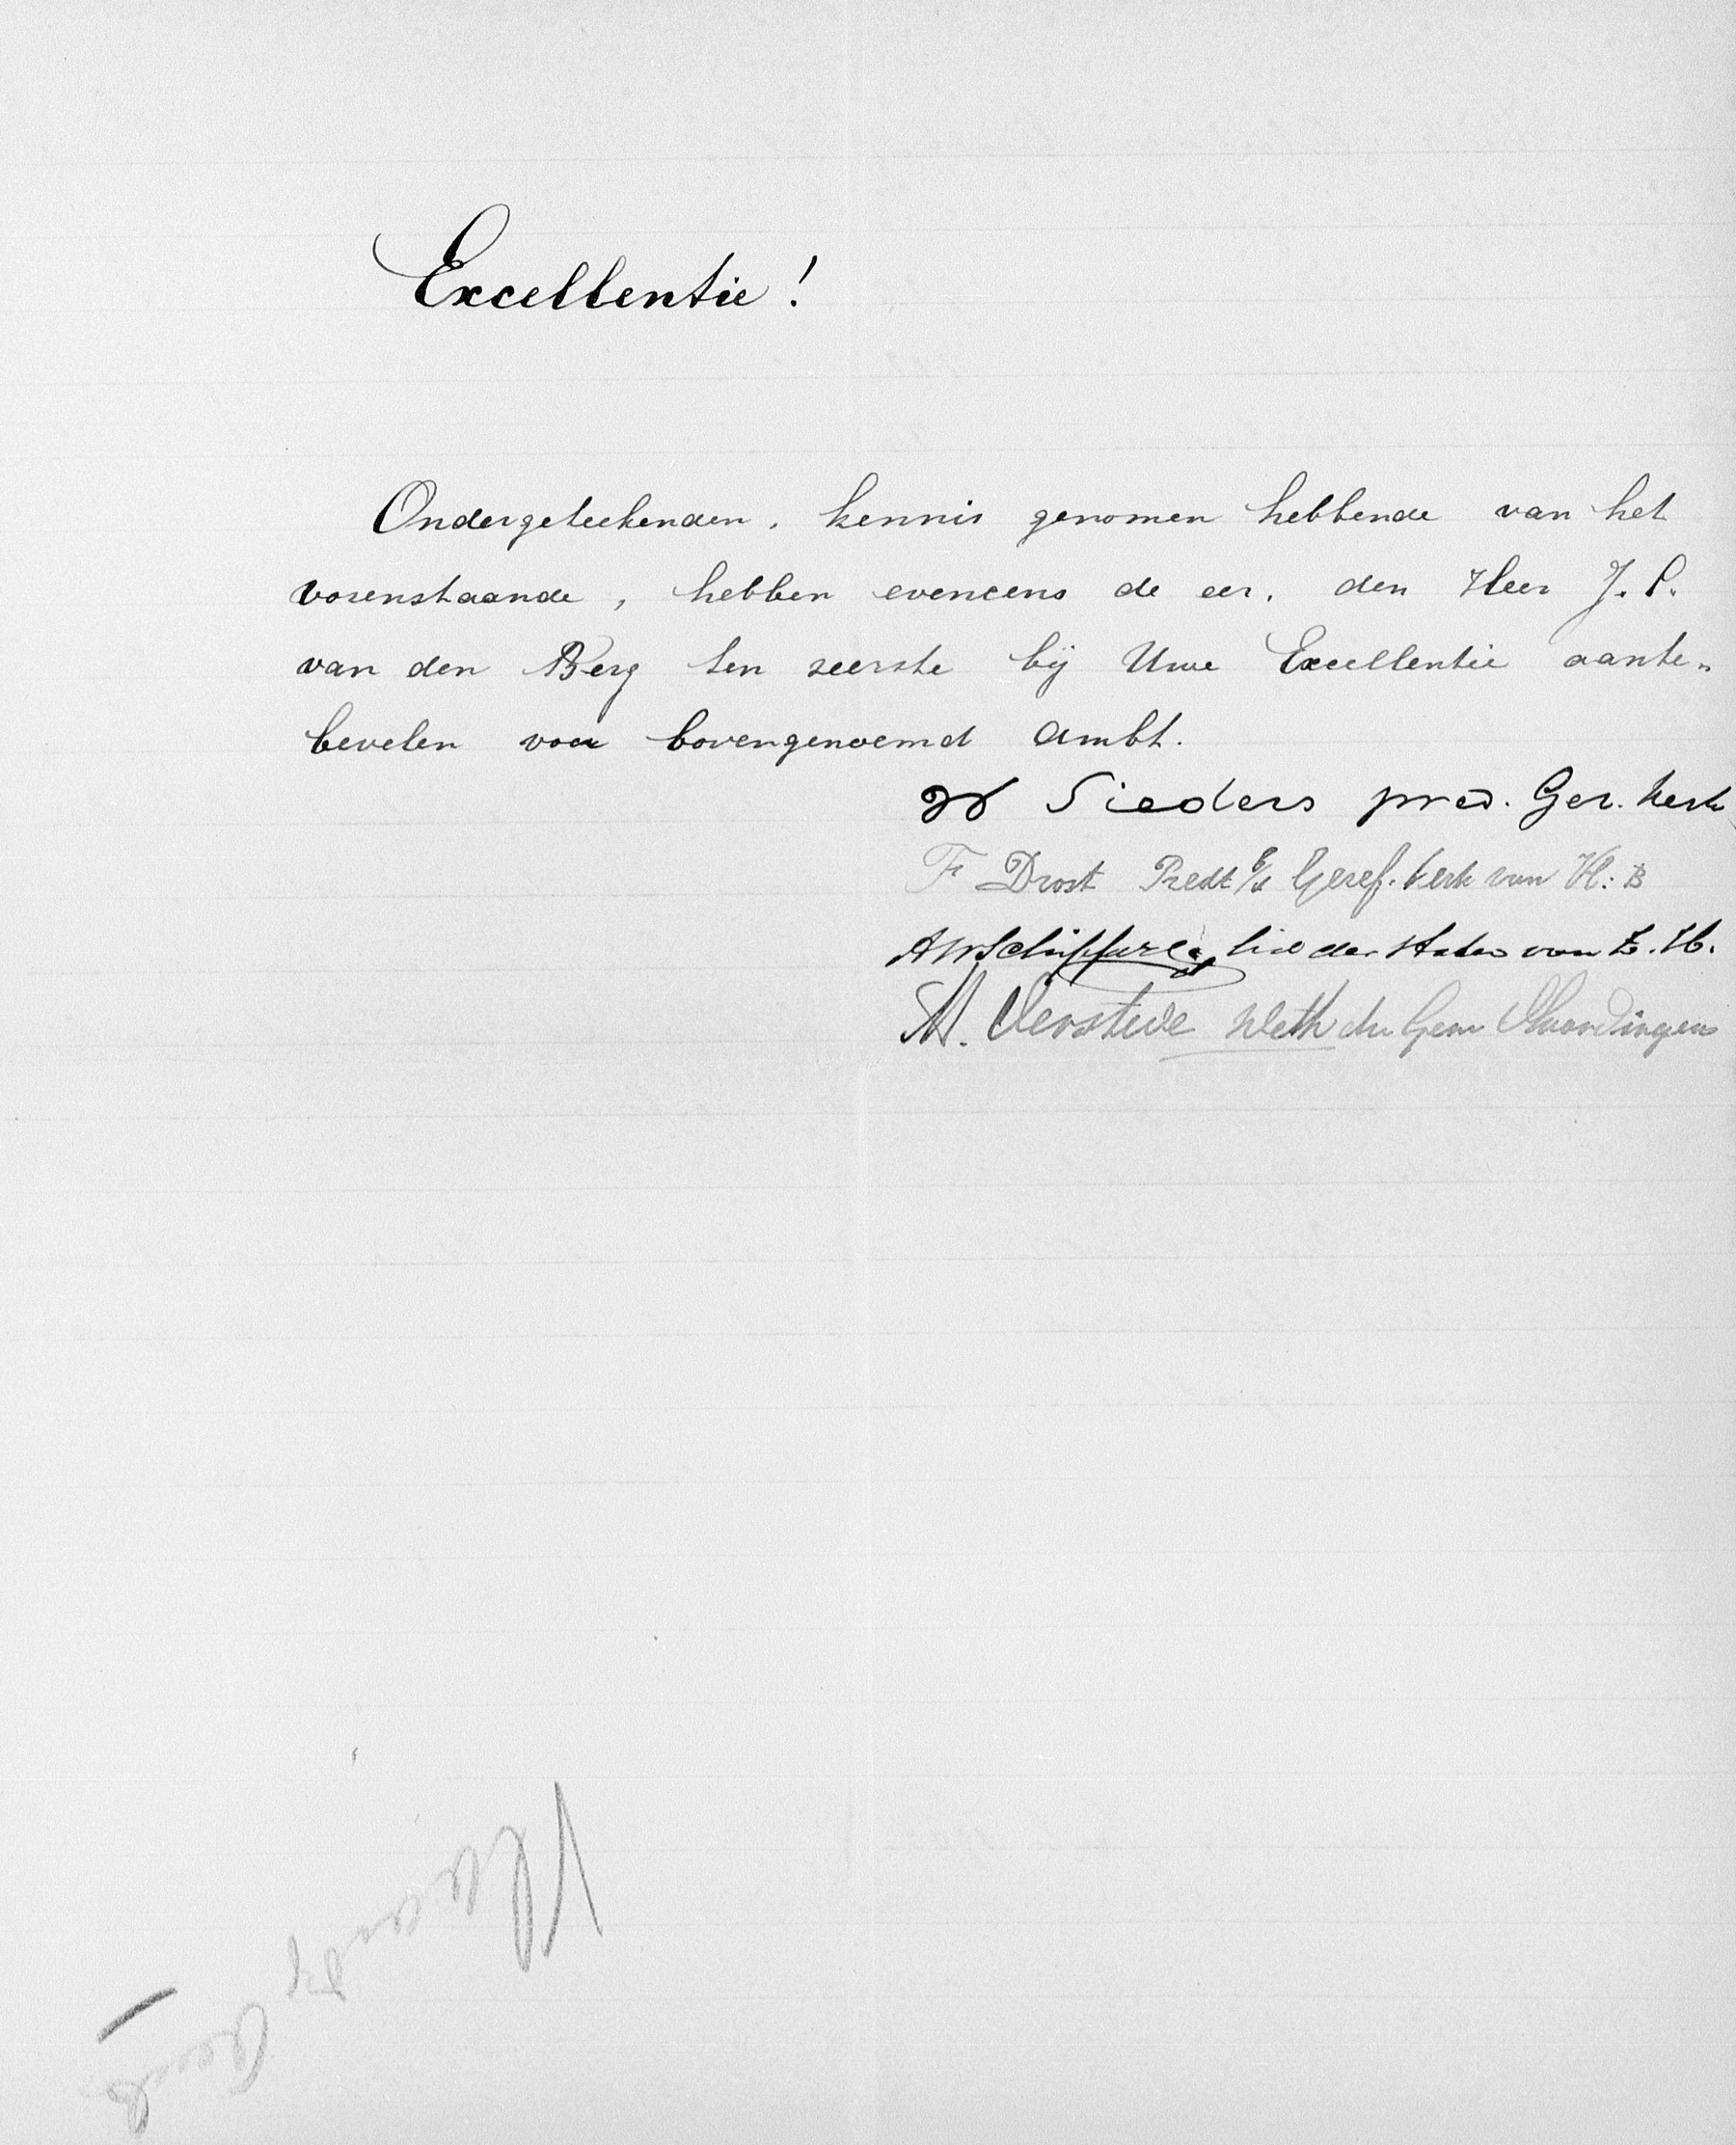 Excellentie!
Ondergeteekenden, kennis genomen hebbende van het
vorenstaande, hebben eveneens de eer, den Heer J. P.
van den Berg ten zeerste bij Uwe Excellentie aante-
bevelen voor bovengenoemd ambt.
W Sieders pred. Ger. Kerk
F Drost Predt b/d Geref. Kerk van Vl: B
lid der Staten van Z. H.
A. Verstede Weth der Gem Vlaardingen